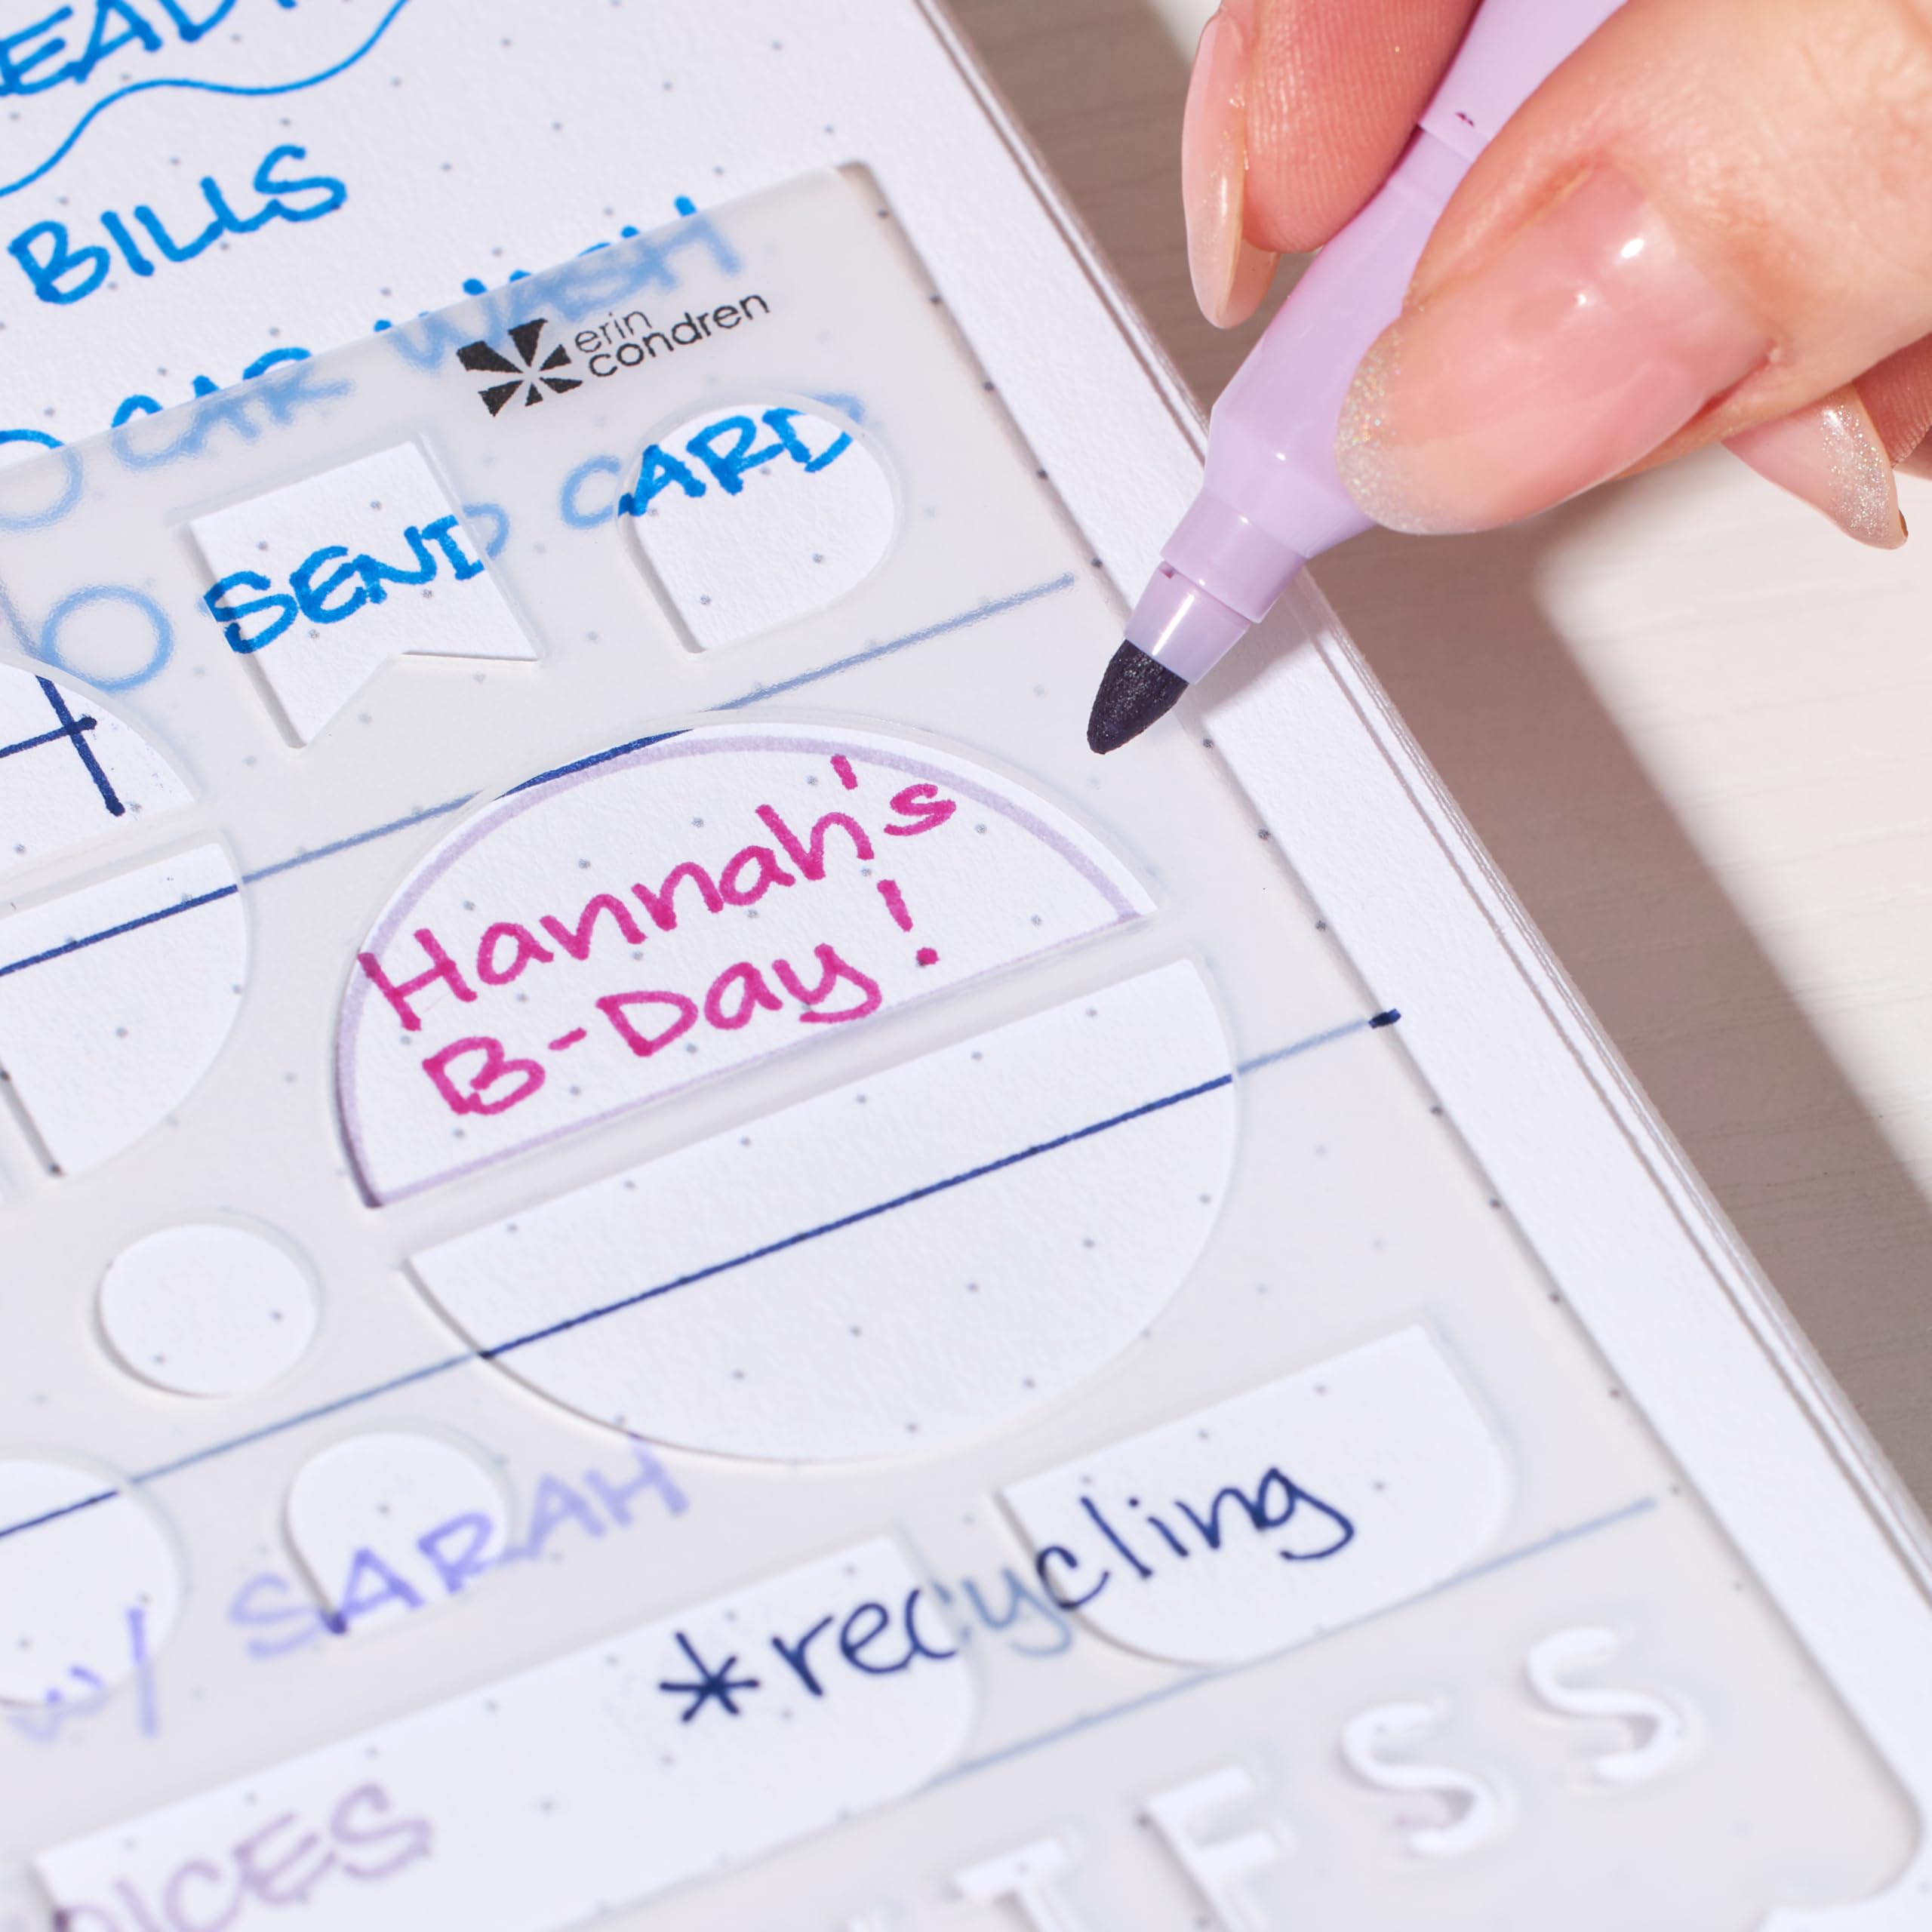 BILLS
CAR WASH
erin
condren
SEND CARD
H
Hannah's
B-Day!
w/ SARAH
*recycling
T F S S